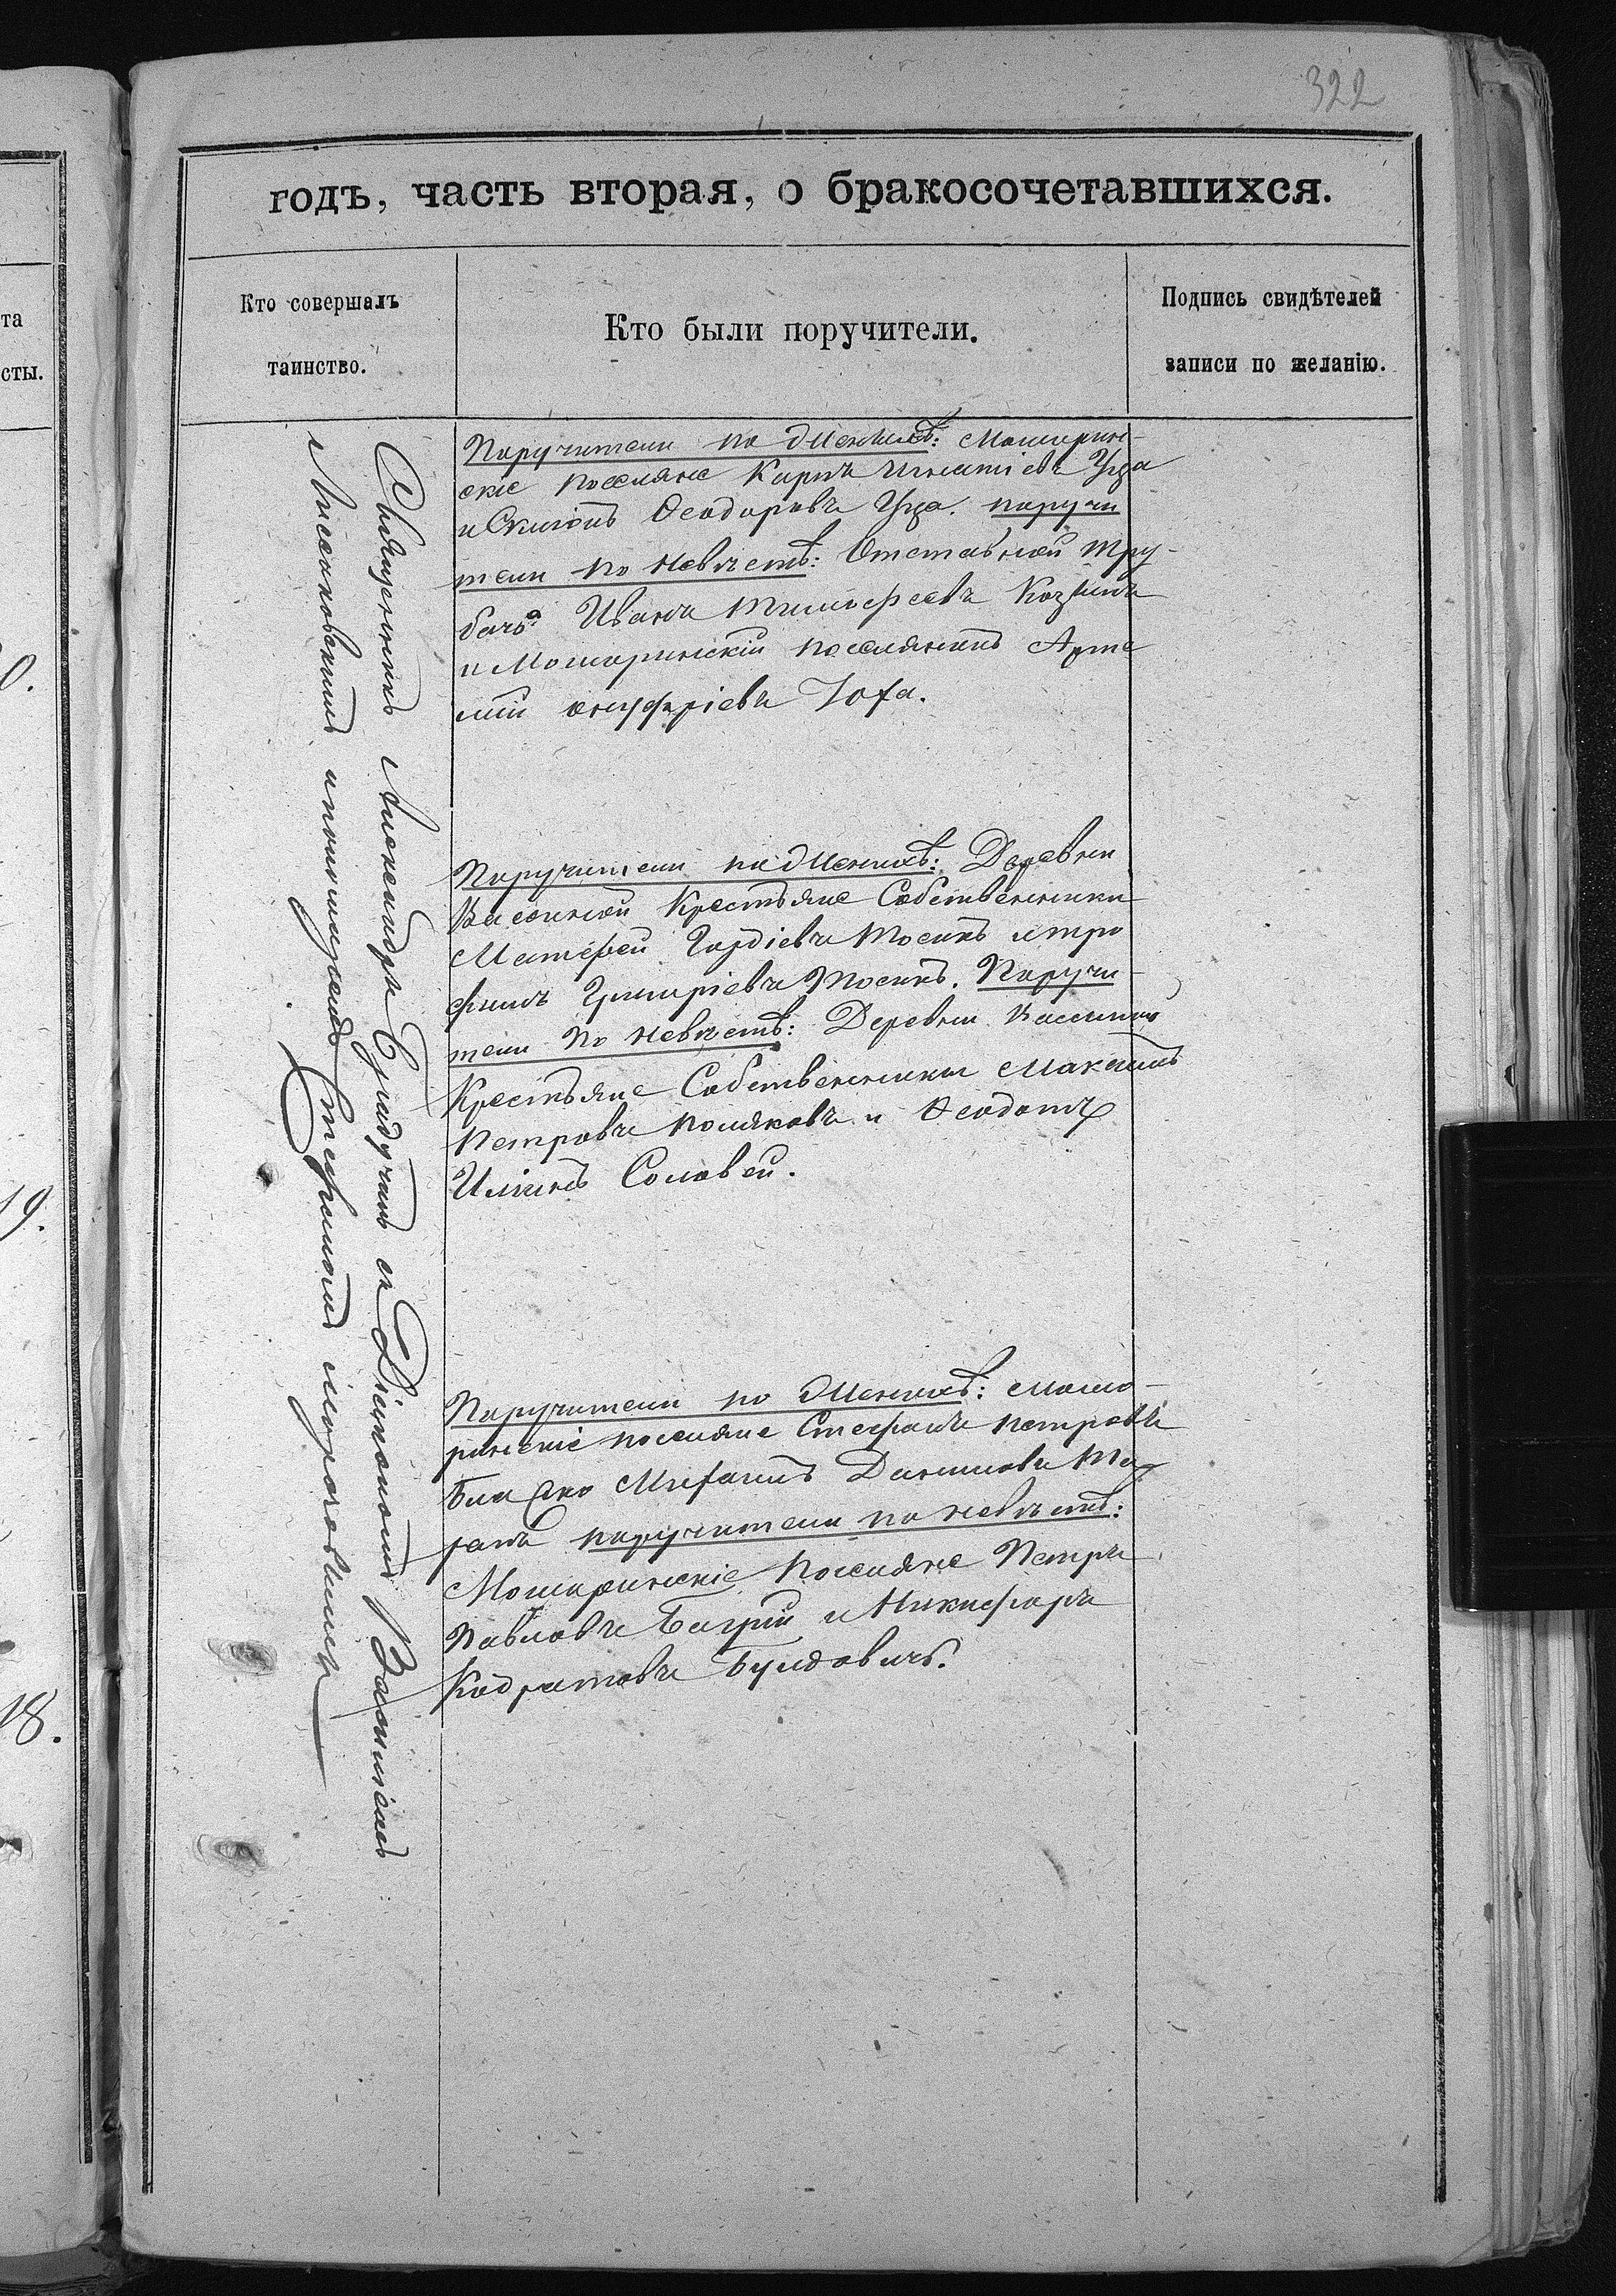 322
годъ, часть вторая, о бракосочетавшихся.
Кто совершалъ
таинство.
Кто были поручители.
Подпись свидѣтелей
записи по желанію.
та
сты.
19.
18.
Священникъ Александръ съ Діакономъ Василіемъ
Лисаковскимъ и пономаремъ Стефаномъ
Поручители по женихѣ: Мошорин-
скіе поселяне Карпъ Игнатіевъ Уца
и Феодоровъ Уца. поручи
тели по невѣстѣ: Отставной тру-
бачъ Иванъ Тимофеевъ
и Мошоринскій поселянинъ Арте
мій онуфріевъ
Поручители по женихѣ: Деревни
Васиной Крестьяне Собственники
Матфей Гордіевъ Мосинъ и тро
фимъ Григоріевъ Мосинъ. Поручи-
тели по невѣстѣ: Деревни Васиной
Крестьяне Собственники Максимъ
Петровъ Поляковъ и Феодотъ
Ильинъ Соловей.
Поручители по женихѣ: мошо-
ринскіе поселяне Стефанъ петровъ
Даниловъ
поручители по невѣстѣ:
Мошоринскіе Поселяне Петръ
Павловъ Багрій и Никифоръ
Кодратовъ